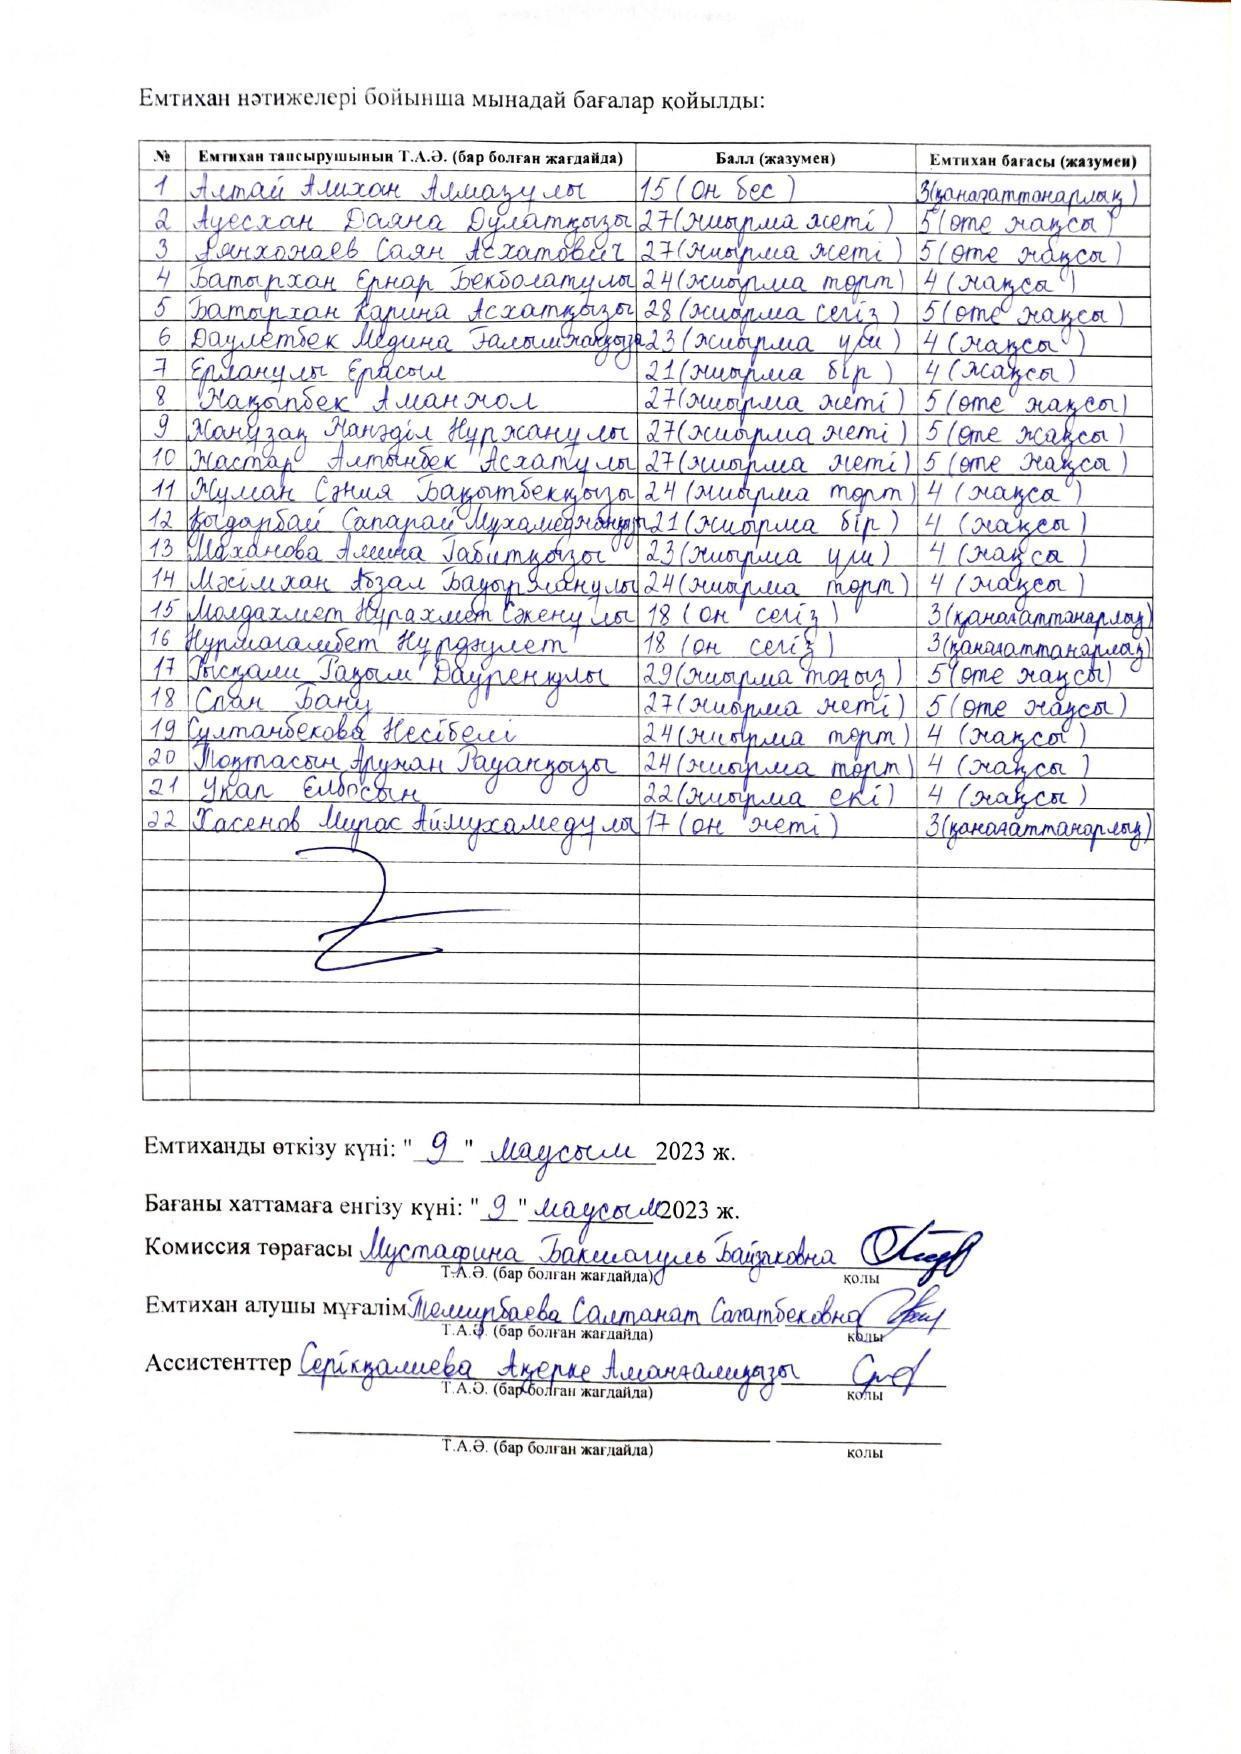 Емтихан нәтижелері бойынша мынадай бағалар қойылды:
№ Емтихан тапсырушының Т.А.Ә. (бар болған жағдайда) Балл (жазумен) Емтихан бағасы (жазумен)
1 Алтай Алихан Алмазұлы 15 (он бес) 3(қанағаттанарлық)
2 Ауесхан Даяна Дулатқызы 27(жиырма жеті) 5(өте жақсы)
3 Саян Асхатович 27(жиырма жеті) 5(өте жақсы)
4 Батырхан Ернар Бекболатулы 24(жиырма төрт) 4 (жақсы)
5 Батырхан Карина Асхатқызы 28(жиырма сегіз) 5(өте жақсы)
6 Даулетбек Медина 23(жиырма үш) 4 (жақсы)
7 Ерланулы Ерасыл 21(жиырма бір) 4 (жақсы)
8 Жақыпбек Аманжол 27(жиырма жеті) 5(өте жақсы)
9 Жанұзақ Жанәділ Нұржанұлы 27(жиырма жеті) 5(өте жақсы)
10 Жастар Алтынбек Асхатұлы 27(жиырма жеті) 5(өте жақсы)
11 Жуман Сәния Бақытбекқызы 24 (жиырма төрт) 4 (жақсы)
12 Қыдарбай Сапарай 21(жиырма бір) 4 (жақсы)
13 Маханова Амина Ғабитқызы 23(жиырма үш) 4 (жақсы)
14 Мәлімхан Абзал Бауыржанұлы 24(жиырма төрт) 4 (жақсы)
15 Молдахмет Нұрахмет Сәкенұлы 18 (он сегіз) 3(қанағаттанарлық)
16 Нұрмағамбет Нұрдәулет 18 (он сегіз) 3(қанағаттанарлық)
17 Рысқали Рақым Дауренұлы 29(жиырма тоғыз) 5(өте жақсы)
18 Спан Бану 27(жиырма жеті) 5(өте жақсы)
19 Султанбекова Несібелі 24(жиырма төрт) 4 (жақсы)
20 Тоқтасын Аружан Рауанқызы 24(жиырма төрт) 4 (жақсы)
21 Укап Елбосын 22(жиырма екі) 4 (жақсы)
22 Хасенов Мирас Аймухамедұлы 17 (он жеті) 3(қанағаттанарлық)
Емтиханды өткізу күні: "9" маусым 2023 ж.
Бағаны хаттамаға енгізу күні: "9" маусым 2023 ж.
Комиссия төрағасы Мустафина Бакшагуль Байзаковна
Т.А.Ә. (бар болған жағдайда) қолы
Емтихан алушы мұғалім Темирбаева Салтанат Сағатбековна
Т.А.Ә. (бар болған жағдайда) қолы
Ассистенттер Серікқалиева Ақерке Аманғалиқызы
Т.А.Ә. (бар болған жағдайда) қолы
Т.А.Ә. (бар болған жағдайда) қолы